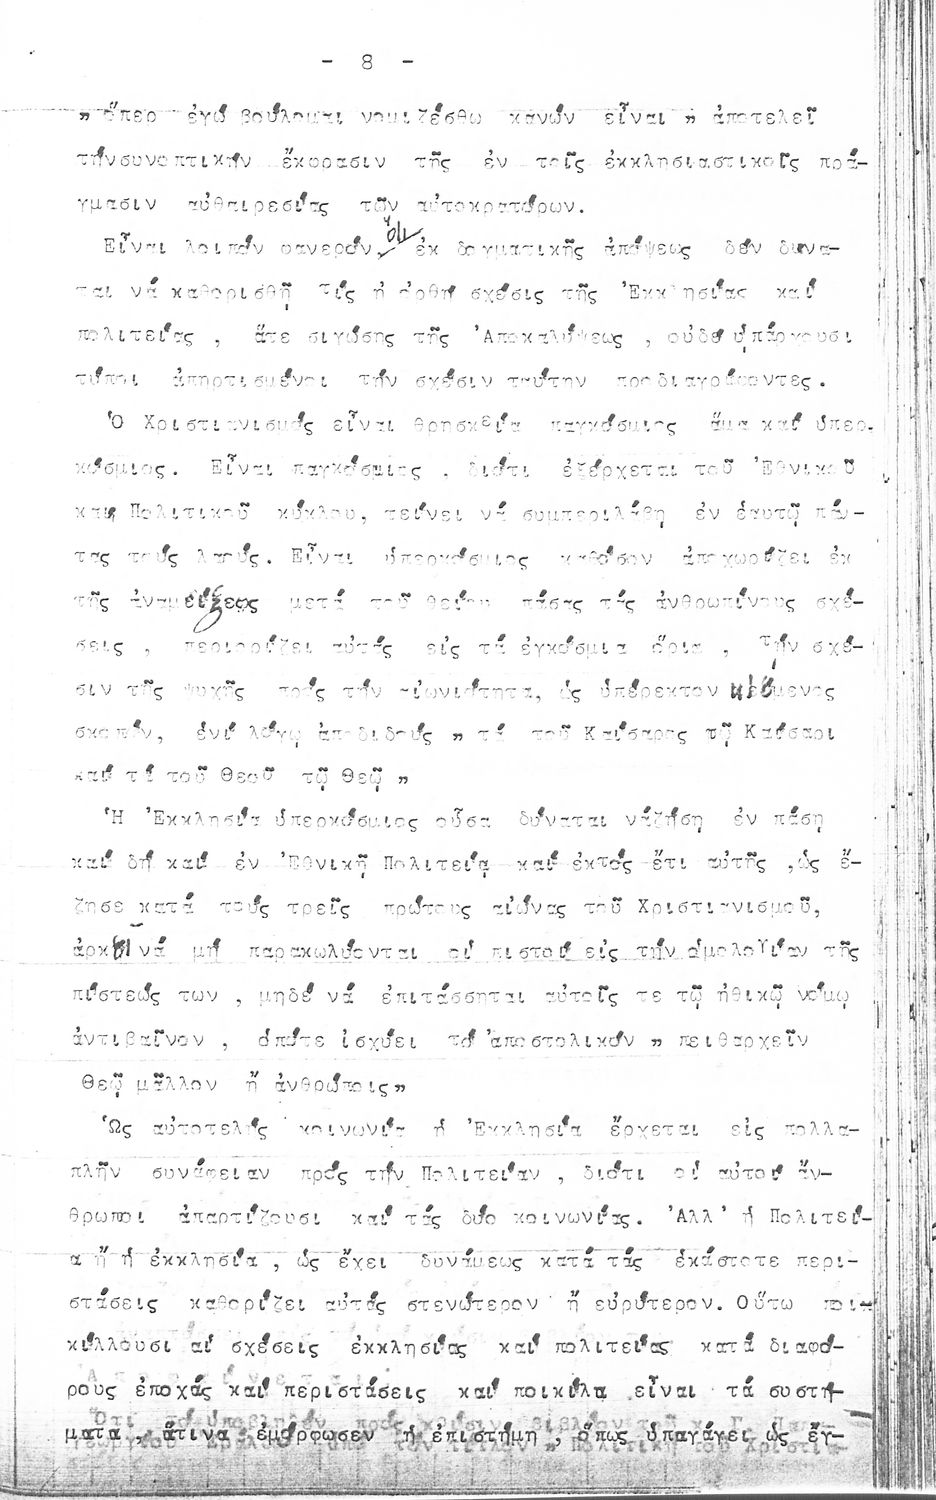 - 8 -
„ ὅπερ ἐγώ βούλομαι νομιζέσθω κανών εἶναι „ ἀποτελεῖ
τήνσυνοπτικήν ἔκφρασιν τῆς ἐν τοῖς ἐκκλησιαστικοῖς πρά-
γμασιν αὐθαιρεσίας τῶν αὐτοκρατόρων.
Εἶναι λοιπόν φανερόν, ὅτι ἐκ δογματικῆς ἀπόψεως δέν δυνα-
ται νά καθορισθῇ τίς ἡ ὀρθή σχέσις τῆς Ἐκκλησίας καί
πολιτείας , ἅτε σιγώσης τῆς Ἀποκαλύψεως , οὐδέ ὑπάρχουσι
τύποι ἀπηρτισμένοι τήν σχέσιν ταύτην προδιαγράφοντες.
Ὁ Χριστιανισμός εἶναι θρησκεία παγκόσμιος ἅμα καί ὑπερ.
κόσμιος. Εἶναι παγκόσμιος , διότι ἐξέρχεται τοῦ Ἐθνικοῦ
καί Πολιτικοῦ κύκλου, τείνει νά συμπεριλάβῃ ἐν ἑαυτῷ πάν-
τας τούς λαούς. Εἶναι ὑπερκόσμιος καθόσον ἀποχωρίζει ἐκ
τῆς ἀναμείξεως μετά τοῦ θείου πάσας τάς ἀνθρωπίνους σχέ-
σεις , περιορίζει αὐτάς εἰς τά ἐγκόσμια ὅρια , τήν σχέ-
σιν τῆς ψυχῆς πρός τήν αἰωνιότητα, ὡς ὑπέρεκτον κείμενος
σκοπόν, ἑνί λόγῳ ἀποδιδούς „ τά τοῦ Καίσαρος τῷ Καίσαρι
καί τά τοῦ Θεοῦ τῷ Θεῷ „
Ἡ Ἐκκλησία ὑπερκόσμιος οὖσα δύναται νάζήσῃ ἐν πάσῃ
καί δή καί ἐν Ἐθνικῇ Πολιτείᾳ καί ἐκτός ἔτι αὐτῆς ,ὡς ἔ-
ζησε κατά τούς τρεῖς πρώτους αἰώνας τοῦ Χριστιανισμοῦ,
ἀρκεῖ νά μή παρακωλύονται οἱ πιστοί εἰς τήν ὁμολογίαν τῆς
πίστεώς των , μηδέ νά ἐπιτάσσηται αὐτοῖς τε τῷ ἠθικῷ νόμῳ
ἀντιβαῖνον , ὁπότε ἰσχύει τό ἀποστολικόν „ πειθαρχεῖν
Θεῷ μᾶλλον ἤ ἀνθρώποις„
Ὡς αὐτοτελής κοινωνία ἡ Ἐκκλησία ἔρχεται εἰς πολλα-
πλήν συνάφειαν πρός τήν Πολιτείαν , διότι οἱ αὐτοί ἄν-
θρωποι ἀπαρτίζουσι καί τάς δύο κοινωνίας. Ἀλλ' ἡ Πολιτεί-
α ἤ ἡ ἐκκλησία , ὡς ἔχει δυνάμεως κατά τάς ἑκάστοτε περι-
στάσεις καθορίζει αὐτάς στενώτερον ἤ εὐρύτερον. Οὕτω ποι-
κίλλουσι αἱ σχέσεις ἐκκλησίας καί πολιτείας κατά διαφό-
ρους ἐποχάς καί περιστάσεις καί ποικίλα εἶναι τά συστή-
ματα , ἅτινα ἐμόρφωσεν ἡ ἐπιστήμη , ὅπως ὑπαγάγει ὡς ἔγ-